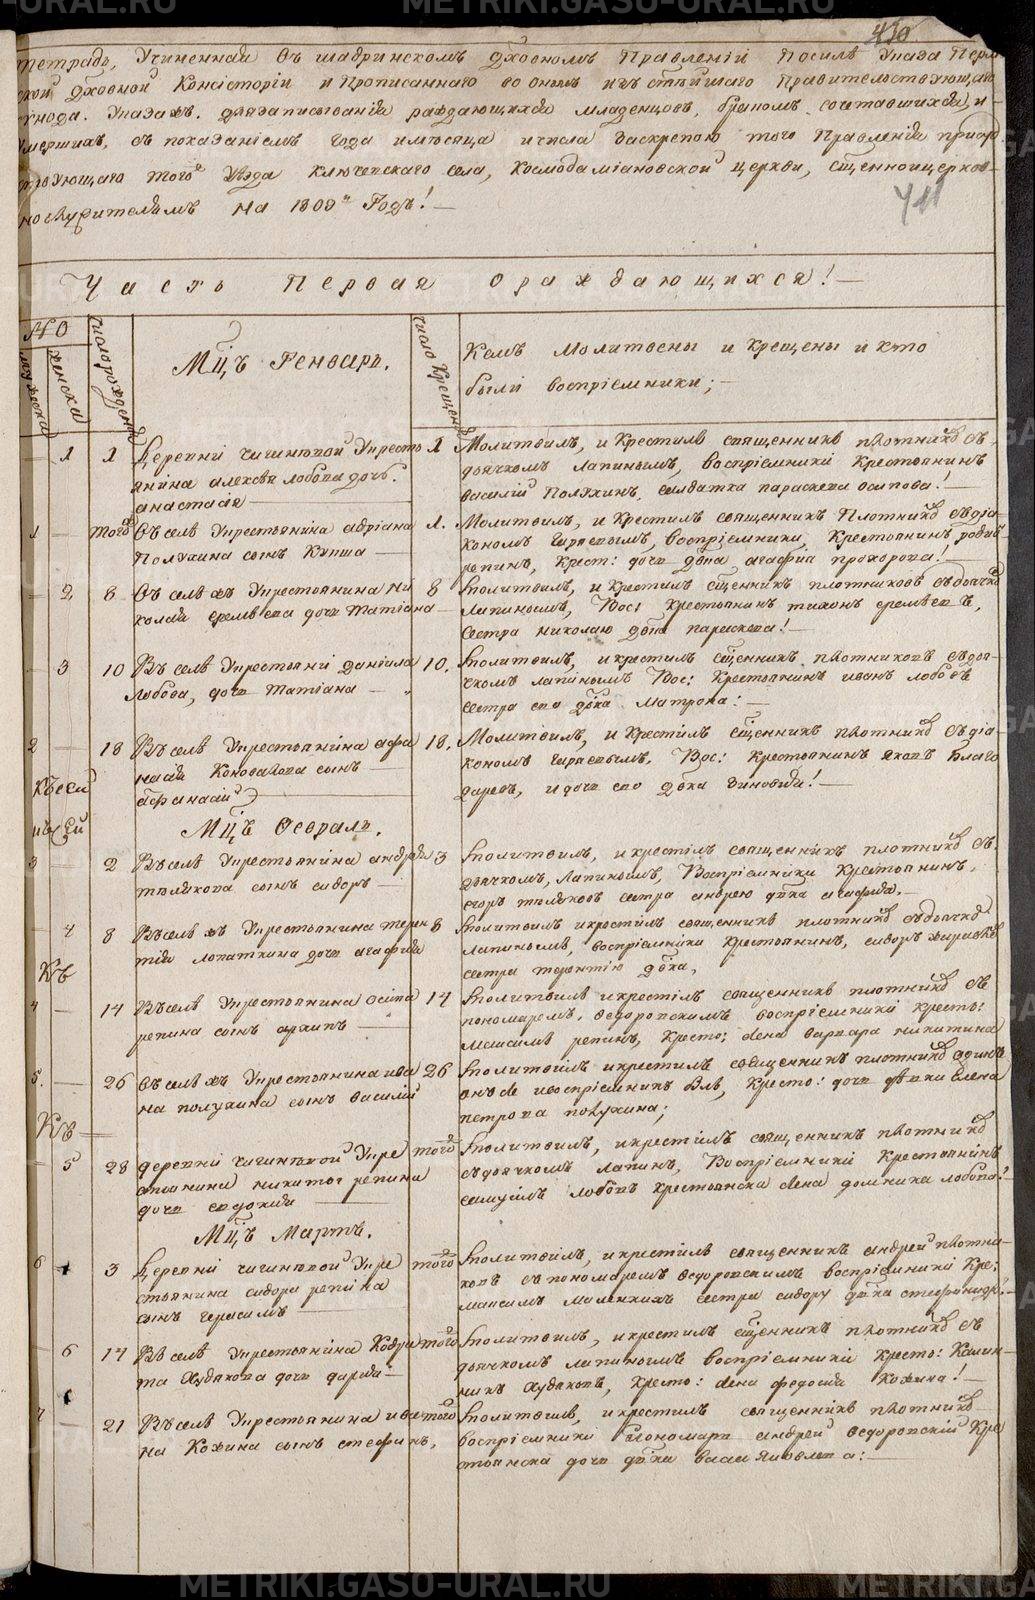 METRIKI.GASO-URAL.RU
410
тетрадь, Учиненная въ шадринскомъ духовномъ Правленіи Посилѣ Указа Перм
ской духовной Консисторіи и Прописаннаго во ономъ изъ стѣйшаго Правительствующаго
Указахъ. для записыванія раждающихся младенцовъ, бракомъ сочетавшихся, и
умершихъ, съ показаніемъ года и мѣсяца и числа заскрепою того Правленія
того уѣзда ключевскаго села, Космодаміановской церкви, сщенно и церков-
нослужителямъ на 1809й Годъ!
411
Часть Первая о раждающихся!
No
мужеска
женска
число рожденія
Мцъ Генварь.
число Крещенія
Кемъ Молитвены и Крещены и кто
были воспріемники;
1 1 Деревни чигинской Укресть
янина алексѣя лобова дочь.
анастасія
1 Молитвилъ, и Крестилъ священникъ плотниковъ съ
дьячкомъ лапинымъ, воспріемники Крестьянинъ
василій Полухинъ, салдатка параскева осипова!
1 того Въ селѣ Укрестьянина адріана
Полухина сынъ
1. Молитвилъ, и Крестилъ священникъ Плотниковъ съ діа-
кономъ воспріемники, Крестьянинъ
репинъ, Крест: дочь агафіа прохорова!
2 8 Въ селѣ Укрестьянина ни
колая еремѣева дочь татіана
8 молитвилъ, и Крестилъ сщенникъ плотниковъ съ дьячкомъ
лапинымъ, Вос: Крестьянинъ тихонъ еремѣевъ,
сестра николаю дѣвка параскева!
3 10 Въ селѣ Укрестьянина даніила
лобова, дочь татіана
10. молитвилъ, и крестилъ сщенникъ плотниковъ съ дья-
чкомъ лапинымъ Вос: Крестьянинъ иванъ лобовъ
сестра его дѣвка матрона:
2 18 Въ селѣ Укрестьянина афа
насія Коновалова сынъ
афанасій
18. Молитвилъ, и Крестилъ сщенникъ плотниковъ съ діа-
кономъ Вос: Крестьянинъ яковъ Благо
даревъ, и дочь его дѣвка зиновия!
Мцъ Февраль.
3 2 Въ селѣ Укрестьянина андрея
толмакова сынъ сидоръ
3 молитвилъ, и крестилъ священникъ плотниковъ съ
дьячкомъ, Лапинымъ, Воспріемники Крестьянинъ,
егоръ сестра андрею дѣвка агафья.
4 8 Въ селѣ Укрестьянина терен
тія лопаткина дочь агафия
8 молитвилъ и крестилъ священникъ плотниковъ съ дьячкомъ
лапинымъ, воспріемники Крестьянинъ, сидоръ
сестра терентію дѣвка,
4 14 Въ селѣ Укрестьянина осипа
репина сынъ архипъ
14 молитвилъ и крестилъ священникъ плотниковъ съ
пономаремъ, Федоровскимъ воспріемники Кресть:
максимъ репинъ, Кресть: жена варвара никитина
5. 26 Въ селѣ Укрестьянина ива
на полухина сынъ василій
26 молитвилъ и крестилъ священникъ плотниковъ одинъ
онъ же и воспріемникъ былъ, Кресть: дочь дѣвка елена
петрова полухина;
5 28 деревни чигинской Укре
стьянина никиты репина
дочь евдокия
того молитвилъ, и крестилъ священникъ плотниковъ
съ дьячкомъ лапинъ, Воспріемники Крестьянинъ
самуилъ лобовъ Крестьянска жена домника лобова!
Мцъ Мартъ.
6 3 Деревни чигинской Укре
стьянина сидора репина
сынъ герасимъ
того молитвилъ, и крестилъ священникъ андрей плотни-
ковъ съ пономаремъ Федоровскимъ воспріемники Кре:
максимъ сестра сидору дѣвка стефанида!
6 14 Въ селѣ Укрестьянина Кодра
та Худякова дочь дарья
того молитвилъ, и крестилъ сщенникъ плотниковъ съ
дьячкомъ лапинымъ воспріемники Кресть: Калин-
никъ худяковъ, Кресть: жена федосия Кожина!
7 21 Въ селѣ Укрестьянина ива
на Кожина сынъ стефанъ,
того молитвилъ, и крестилъ священникъ плотниковъ
воспріемники Пономарь андрей Федоровскій Кре
стьянска дочь дѣвка васса яковлева:
METRIKI.GASO-URAL.RU